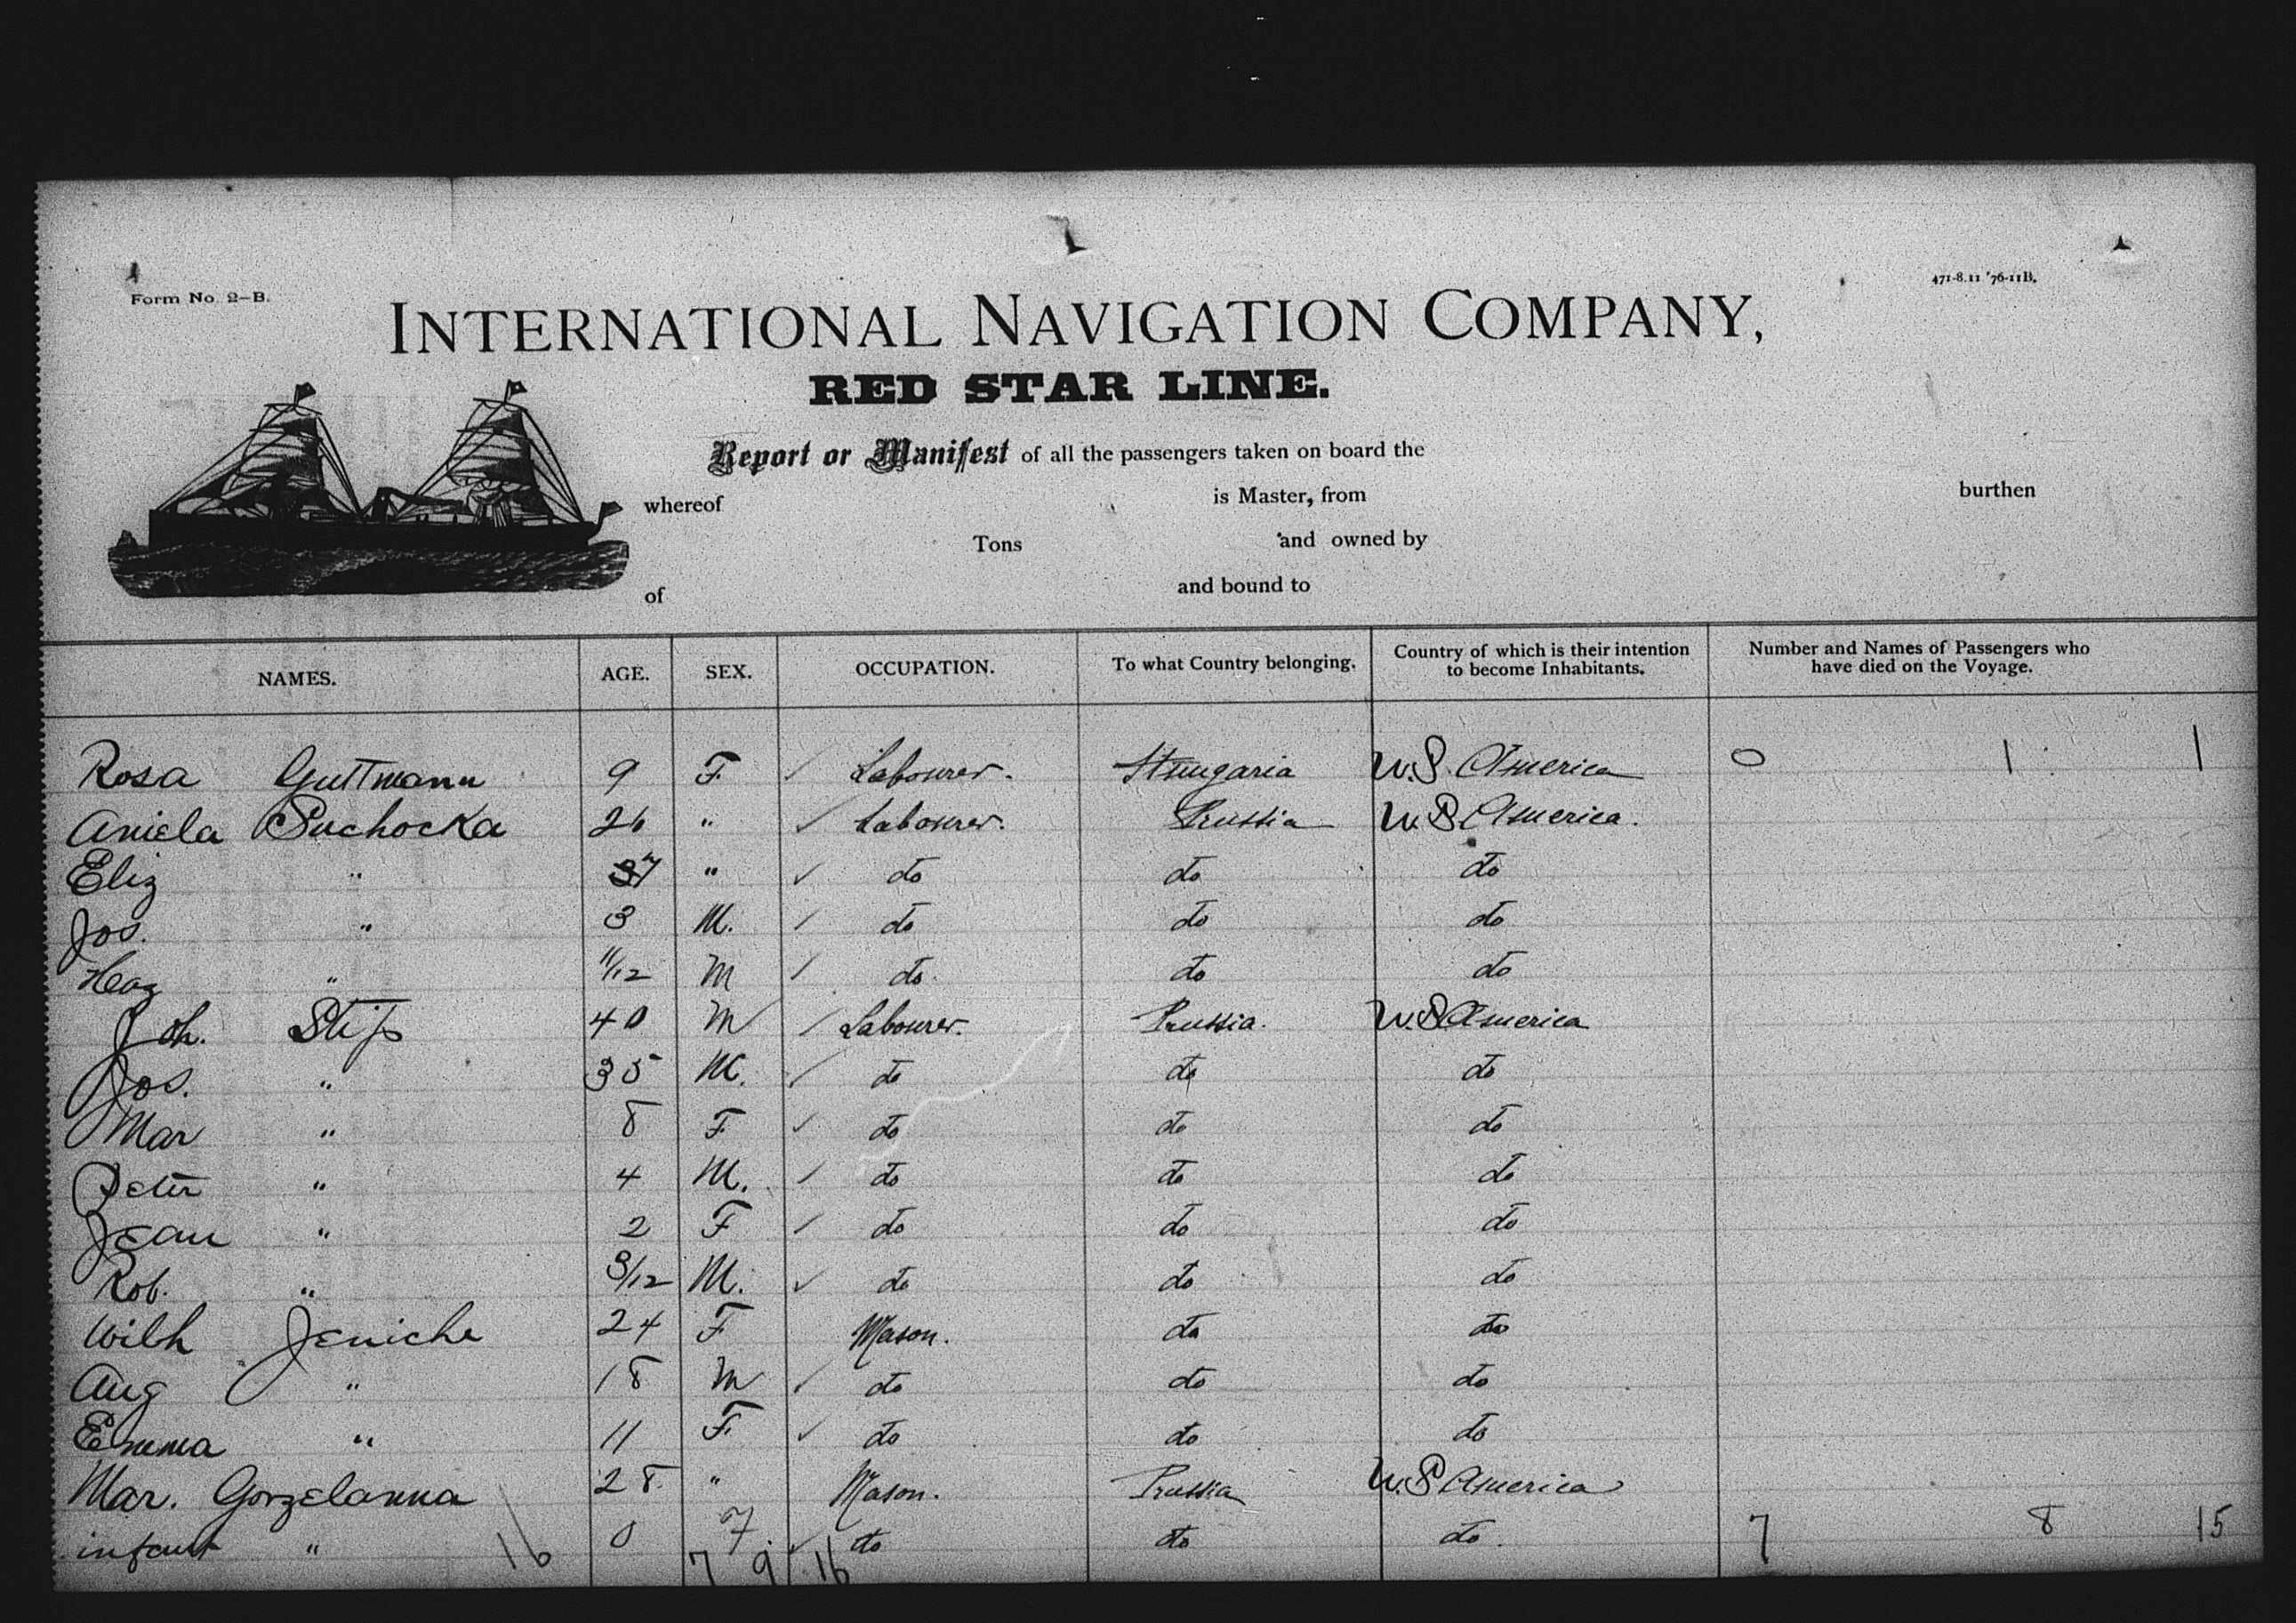 Form No. 2-B.
471-8.11 '76-11B.
INTERNATIONAL NAVIGATION COMPANY,
RED STAR LINE.
Report or Manifest of all the passengers taken on board the
whereof is Master, from burthen
Tons and owned by
of and bound to
NAMES. AGE. SEX. OCCUPATION. To what Country belonging. Country of which is their intention to become Inhabitants. Number and Names of Passengers who have died on the Voyage.
Rosa Guttmann 9 F. ✓ Labourer. Hungaria U.S. America 0 1 1
Aniela Suchocka 26 " ✓ Labourer. Prussia U.S America.
Eliz " 7 " ✓ do do do
Jos. " 3 M. ✓ do do do
" 11/12 M ✓ do do do
Joh. Stip 40 M ✓ Labourer. Prussia. U.S America
Jos. " 35 M. ✓ do do do
Mar " 8 F ✓ do do do
Peter " 4 M. ✓ do do do
Jean " 2 F ✓ do do do
Rob. " 3/12 M. ✓ do do do
Wilh Jeniche 24 F Mason. do do
Aug " 18 M ✓ do do do
Emma " 11 F. ✓ do do do
Mar. Gorzelanna 28 " Mason. Prussia U.S America
infant " 16 0 F. ✓ do do do. 7 8 15
7 9 16